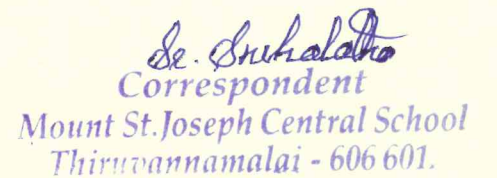 Sr. Snehalatha
Correspondent
Mount St.Joseph Central School
Thiruvannamalai - 606 601.